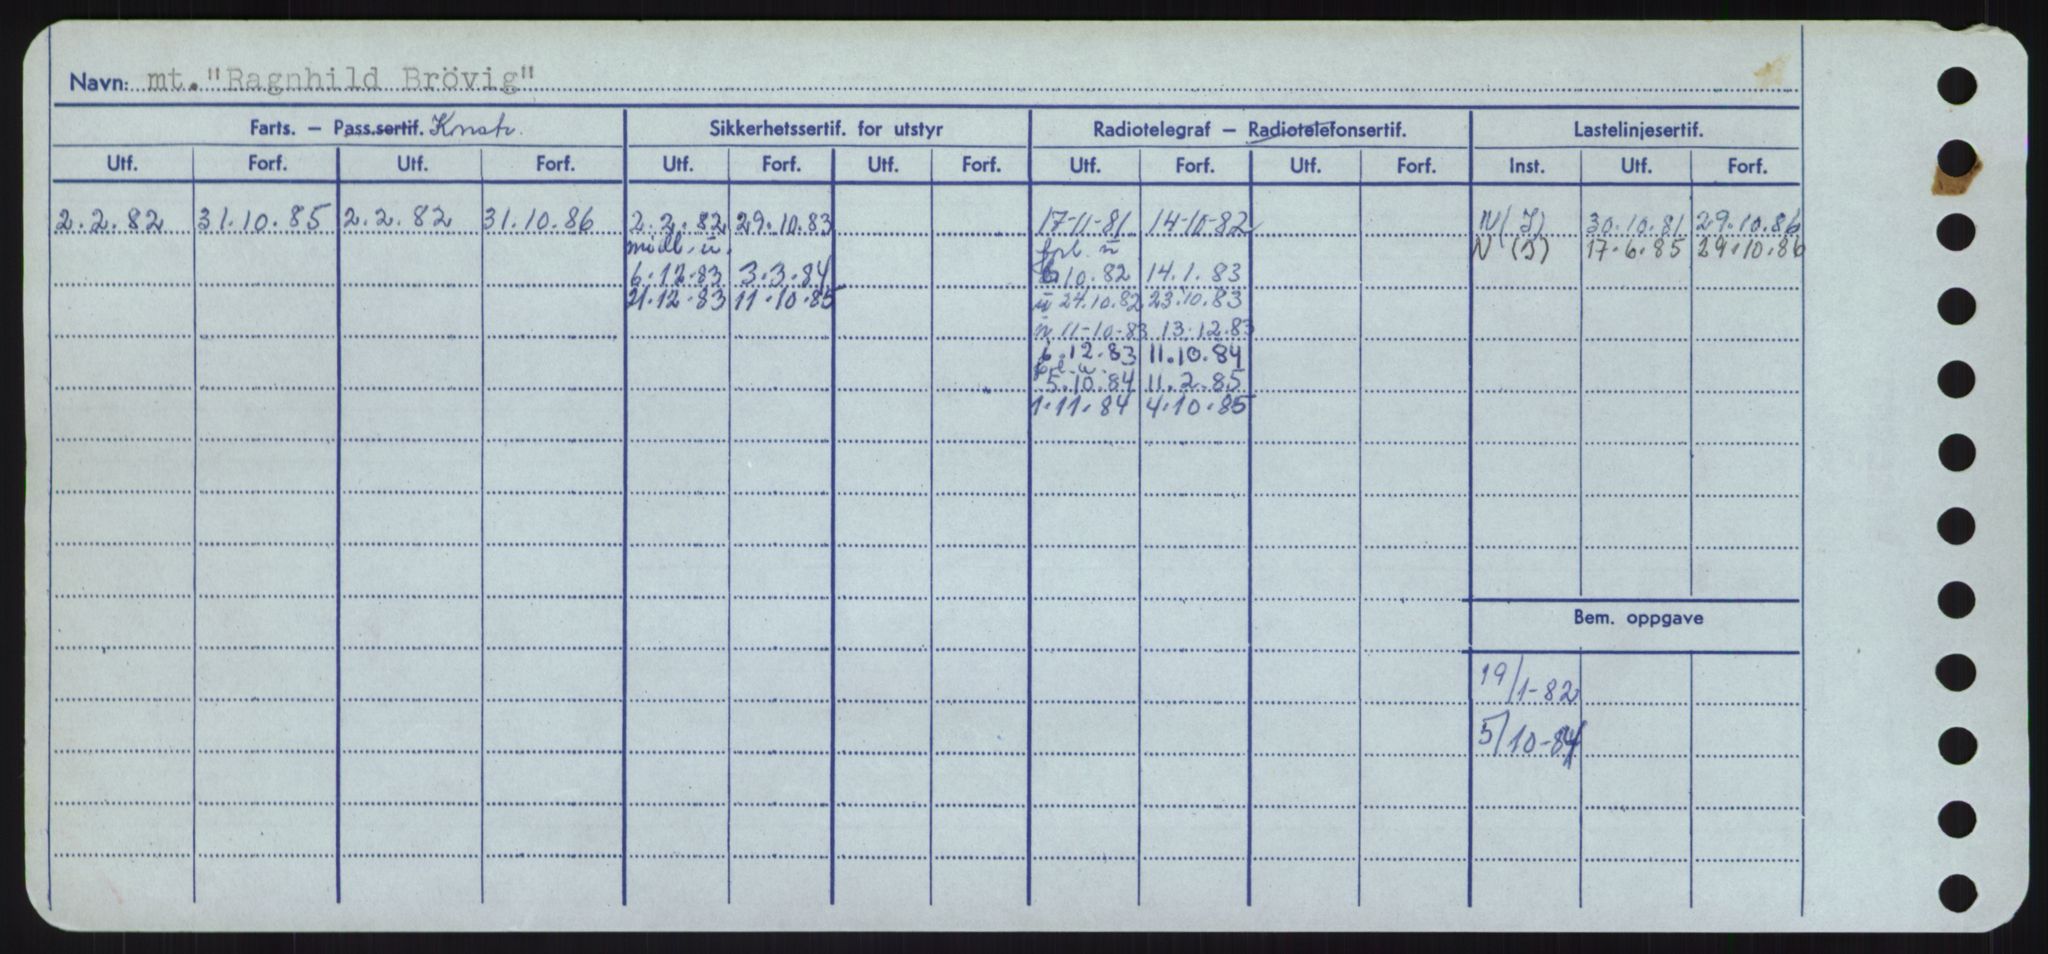 Navn: mt. "Ragnhild Brövig"
Farts. – Pass.sertif. Konstr. Sikkerhetssertif. for utstyr Radiotelegraf – Radiotelefonsertif. Lastelinjesertif.
Utf. Forf. Utf. Forf. Utf. Forf. Utf. Forf. Utf. Forf. Utf. Forf. Inst. Utf. Forf.
2.2.82 31.10.85 2.2.82 31.10.86 2.2.82 29.10.83 17-11-81 14-10-82 N(I) 30.10.81 29.10.86
midl. u. forl. u N (I) 17.6.85 29.10.86
6.12.83 3.3.84 6.10.82 14.1.83
21.12.83 11.10.85 u 24.10.82 23.10.83
11-10-83 13.12.83
6.12.83 11.10.84
5.10.84 11.2.85
1.11.84 4.10.85
Bem. oppgave
19/1-82
5/10-84